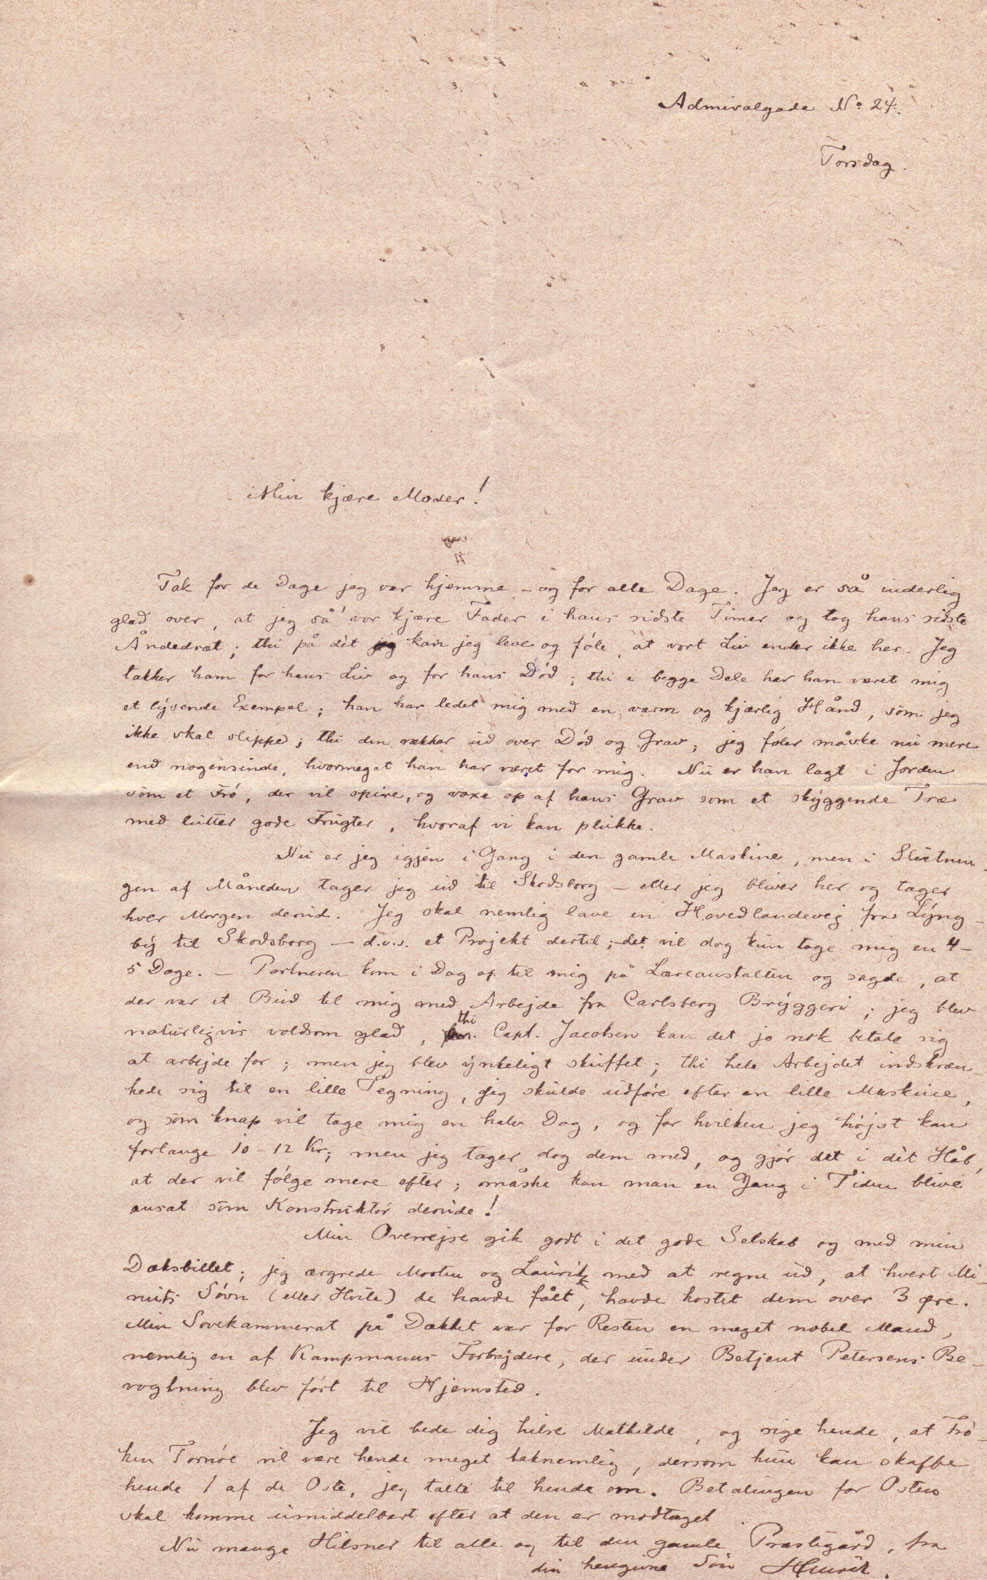 Admiralgade No 24.
Torsdag.
Min kjære Moder!
Tak for de Dage jeg var hjemme – og for alle Dage. Jeg er så inderlig
glad over, at jeg så vor kjære Fader i hans sidste Timer og tog hans sidste
Åndedræt; thi på dèt kan jeg leve og föle, at vort Liv ender ikke her. Jeg
takker ham for hans Liv og for hans Död; thi i begge Dele har han været mig
et lysende Exempel; han har ledet mig med en varm og kjærlig Hånd, som jeg
ikke skal slippe; thi den rækker ud over Död og Grav; jeg föler måske nu mere
end nogensinde, hvormeget han har været for mig. Nu er han lagt i Jorden
som et Frö, der vil spire, og voxe op af hans Grav som et skyggende Træ
med lutter gode Frugter, hvoraf vi kan plukke.
Nu er jeg igjen i Gang i den gamle Maskine, men i Slutnin-
gen af Måneden tager jeg ud til Skodsborg – eller jeg bliver her og tager
hver Morgen derud. Jeg skal nemlig lave en Hovedlandevej fra Lyng-
by til Skodsborg – d.v.s. et Projekt dertil; det vil dog kun tage mig en 4–
5 Dage. – Portneren kom i Dag op til mig på Læreanstalten og sagde, at
der var et Bud til mig med Arbejde fra Carlsberg Bryggeri; jeg blev
naturligvis voldsom glad, thi Capt. Jacobsen kan det jo nok betale sig
at arbejde for; men jeg blev ynkeligt skuffet; thi hele Arbejdet indskræn-
kede sig til en lille Tegning, jeg skulde udföre efter en lille Maskine,
og som knap vil tage mig en halv Dag, og for hvilken jeg höjst kan
forlange 10-12 Kr; men jeg tager dog dem med, og gjör det i dèt Håb,
at der vil fölge mere efter; måske kan man en Gang i Tiden blive
ansat som Konstruktör derude!
Min Overrejse gik godt i det gode Selskab og med min
Dæksbillet; jeg ærgrede Morten og Laurits med at regne ud, at hvert Mi-
nuts Sövn (eller Hvile) de havde fået, havde kostet dem over 3 Øre.
Min Sovekammerat på Dækket var for Resten en meget nobel Mand,
nemlig en af Kampmanns Forbrydere, der under Betjent Petersens Be-
vogtning blev fört til Hjemsted.
Jeg vil bede dig hilse Mathilde, og sige hende, at Frö-
ken Tornöe vil være hende meget taknemlig, dersom hun kan skaffe
hende 1 af de Oste, jeg talte til hende om. Betalingen for Osten
skal komme umiddelbart efter at den er modtaget.
Nu mange Hilsner til alle og til den gamle Præstegård, fra
din hengivne Sön Henrik.